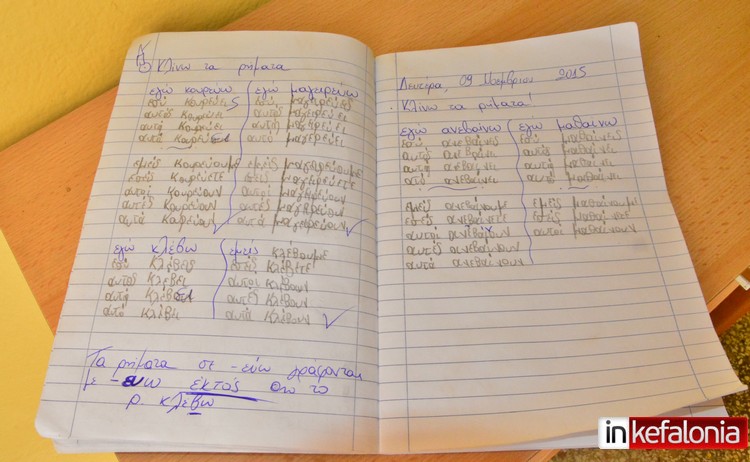 Κλίνω τα ρήματα
εγώ κουρεύω εγώ μαγειρεύω
εσύ κουρεύεις εσύ μαγειρεύεις
αυτός κουρεύει αυτός μαγειρεύει
αυτή κουρεύει αυτή μαγειρεύει
αυτό κουρεύει αυτό μαγειρεύει
εμείς κουρεύουμε εμείς μαγειρεύουμε
εσείς κουρεύετε εσείς μαγειρεύετε
αυτοί κουρεύουν αυτοί μαγειρεύουν
αυτές κουρεύουν αυτές μαγειρεύουν
αυτά κουρεύουν αυτά μαγειρεύουν
εγώ κλέβω εμείς κλέβουμε
εσύ κλέβεις εσείς κλέβετε
αυτός κλέβει αυτοί κλέβουν
αυτή κλέβει αυτές κλέβουν
αυτό κλέβει αυτά κλέβουν
Τα ρήματα σε -εύω γράφονται
με -ευω εκτός από το
ρ. κλέβω
Δευτέρα, 09 Νοεμβρίου 2015
Κλίνω τα ρήματα!
εγώ ανεβαίνω εγώ μαθαίνω
εσύ ανεβαίνεις εσύ μαθαίνεις
αυτός ανεβαίνει αυτός μαθαίνει
αυτή ανεβαίνει αυτή μαθαίνει
αυτό ανεβαίνει αυτό μαθαίνει
εμείς ανεβαίνουμε εμείς μαθαίνουμε
εσείς ανεβαίνετε εσείς
αυτοί ανεβαίνουν αυτοί μαθαίνουν
αυτές ανεβαίνουν
αυτά ανεβαίνουν
inkefalonia